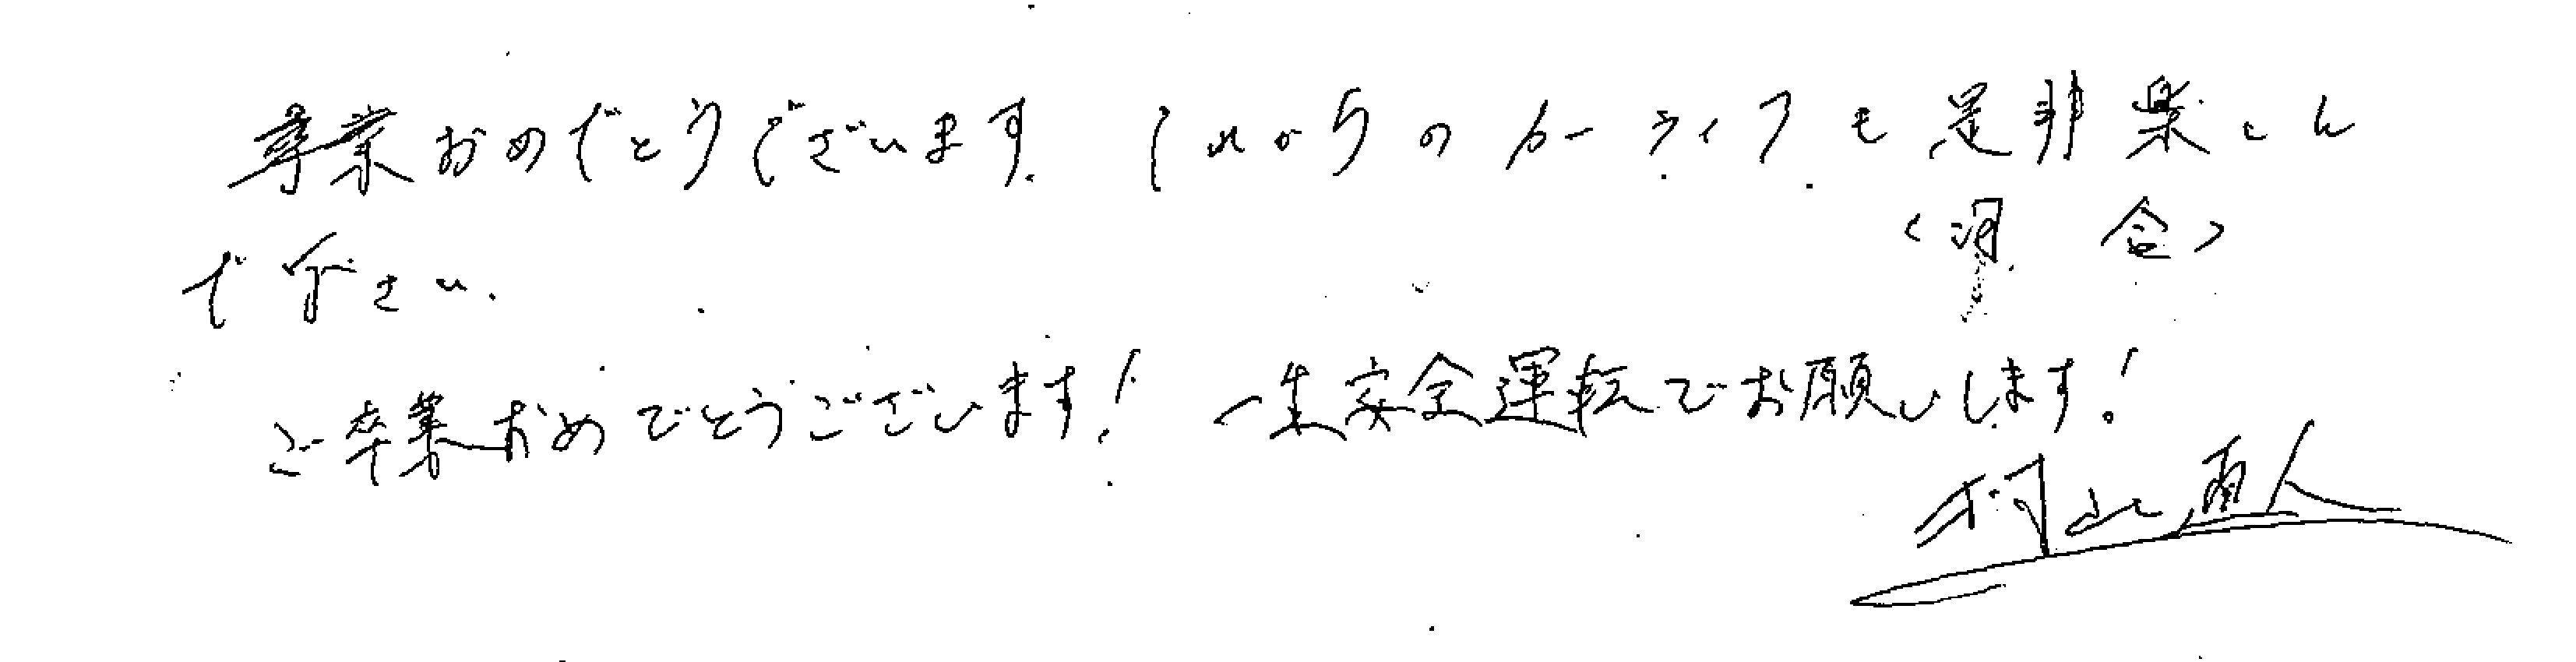 卒業おめでとうございます。これからのカーライフも是非楽しん
で下さい。
ご卒業おめでとうございます！ 一生安全運転でお願いします！
村山直人